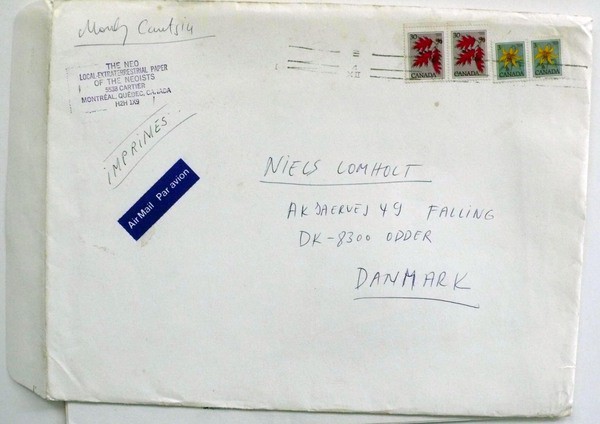 Mondy Cantsin
THE NEO
LOCAL-EXTRATERRESTRIAL PAPER
OF THE NEOISTS
5538 CARTIER
MONTRÉAL, QUÉBEC, CANADA
H2H 1X9
IMPRIMÉS
Air Mail Par avion
30
CANADA
30
CANADA
CANADA
CANADA
NIELS LOMHOLT
AKJAERVEJ 49 FALLING
DK-8300 ODDER
DANMARK